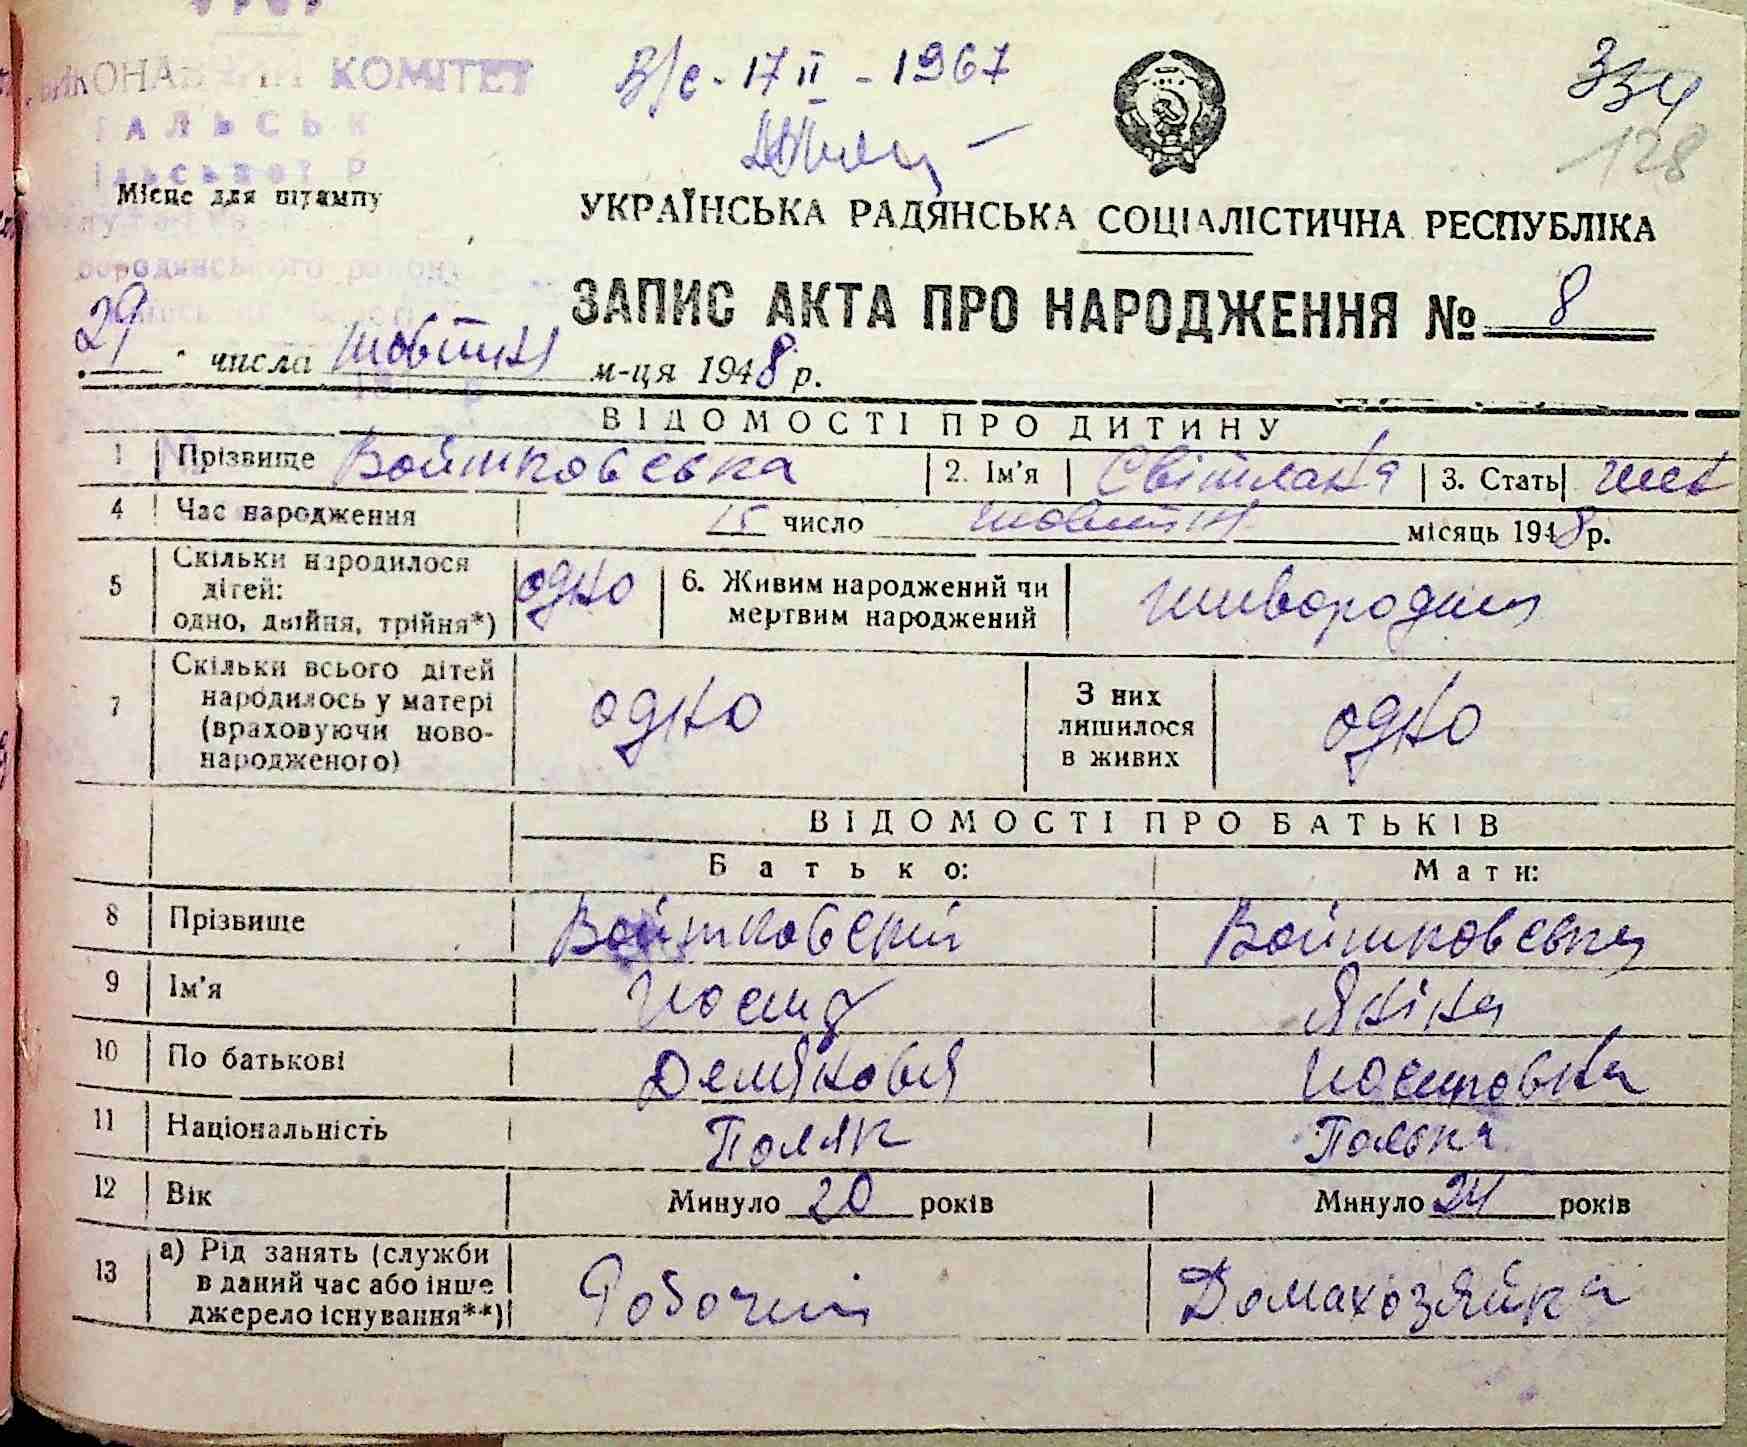 ОНА КОМІТЕТ
АЛЬСЬК
В/с - 17 II - 1967
334
128
Місце для штампу
УКРАЇНСЬКА РАДЯНСЬКА СОЦІАЛІСТИЧНА РЕСПУБЛІКА
бородянського району
ЗАПИС АКТА ПРО НАРОДЖЕННЯ № 8
29 числа жовтня м-ця 1948 р.
ВІДОМОСТІ ПРО ДИТИНУ
1 Прізвище Войтковська 2. Ім'я Світлана 3. Стать жен
4 Час народження 15 число жовтня місяць 1948 р.
5 Скільки народилося дітей: одно, двійня, трійня*) одно 6. Живим народжений чи мертвим народжений живородж
7 Скільки всього дітей народилось у матері (враховуючи новонародженого) одно З них лишилося в живих одно
ВІДОМОСТІ ПРО БАТЬКІВ
Батько: Мати:
8 Прізвище Войтковский Войтковська
9 Ім'я Иосип Яніна
10 По батькові Демянович Иосиповна
11 Національність Поляк Полька
12 Вік Минуло 20 років Минуло 24 років
13 а) Рід занять (служби в даний час або інше джерело існування**) Робочий Домахозяйка